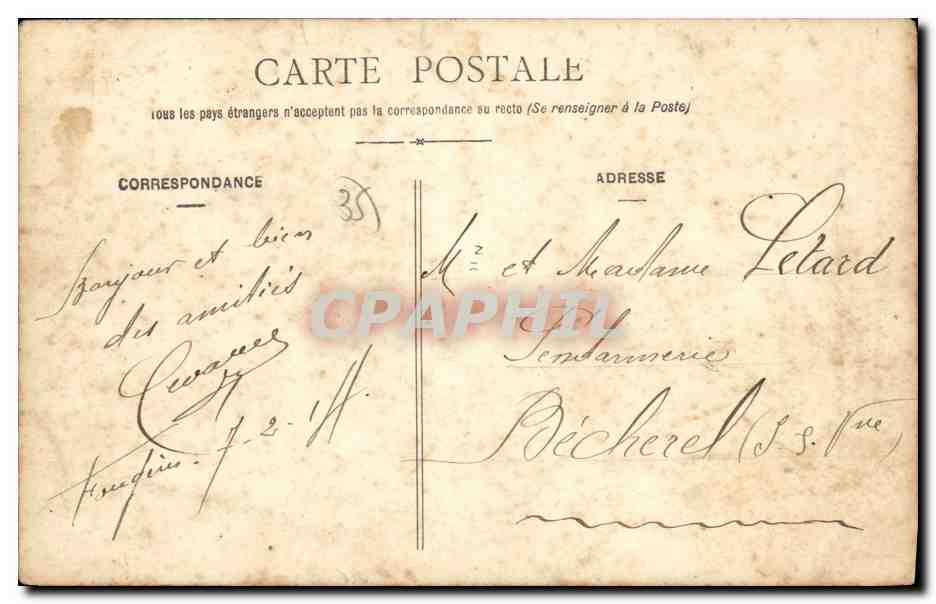 CARTE POSTALE
Tous les pays étrangers n'acceptent pas la correspondance au recto (Se renseigner à la Poste)
CORRESPONDANCE
35
Bonjour et bien
des amitiés
Fougères. 7-2-14.
ADRESSE
Mr et Madame Letard
Gendarmerie
Bécherel (I. &. Vne)
CPAPHIL